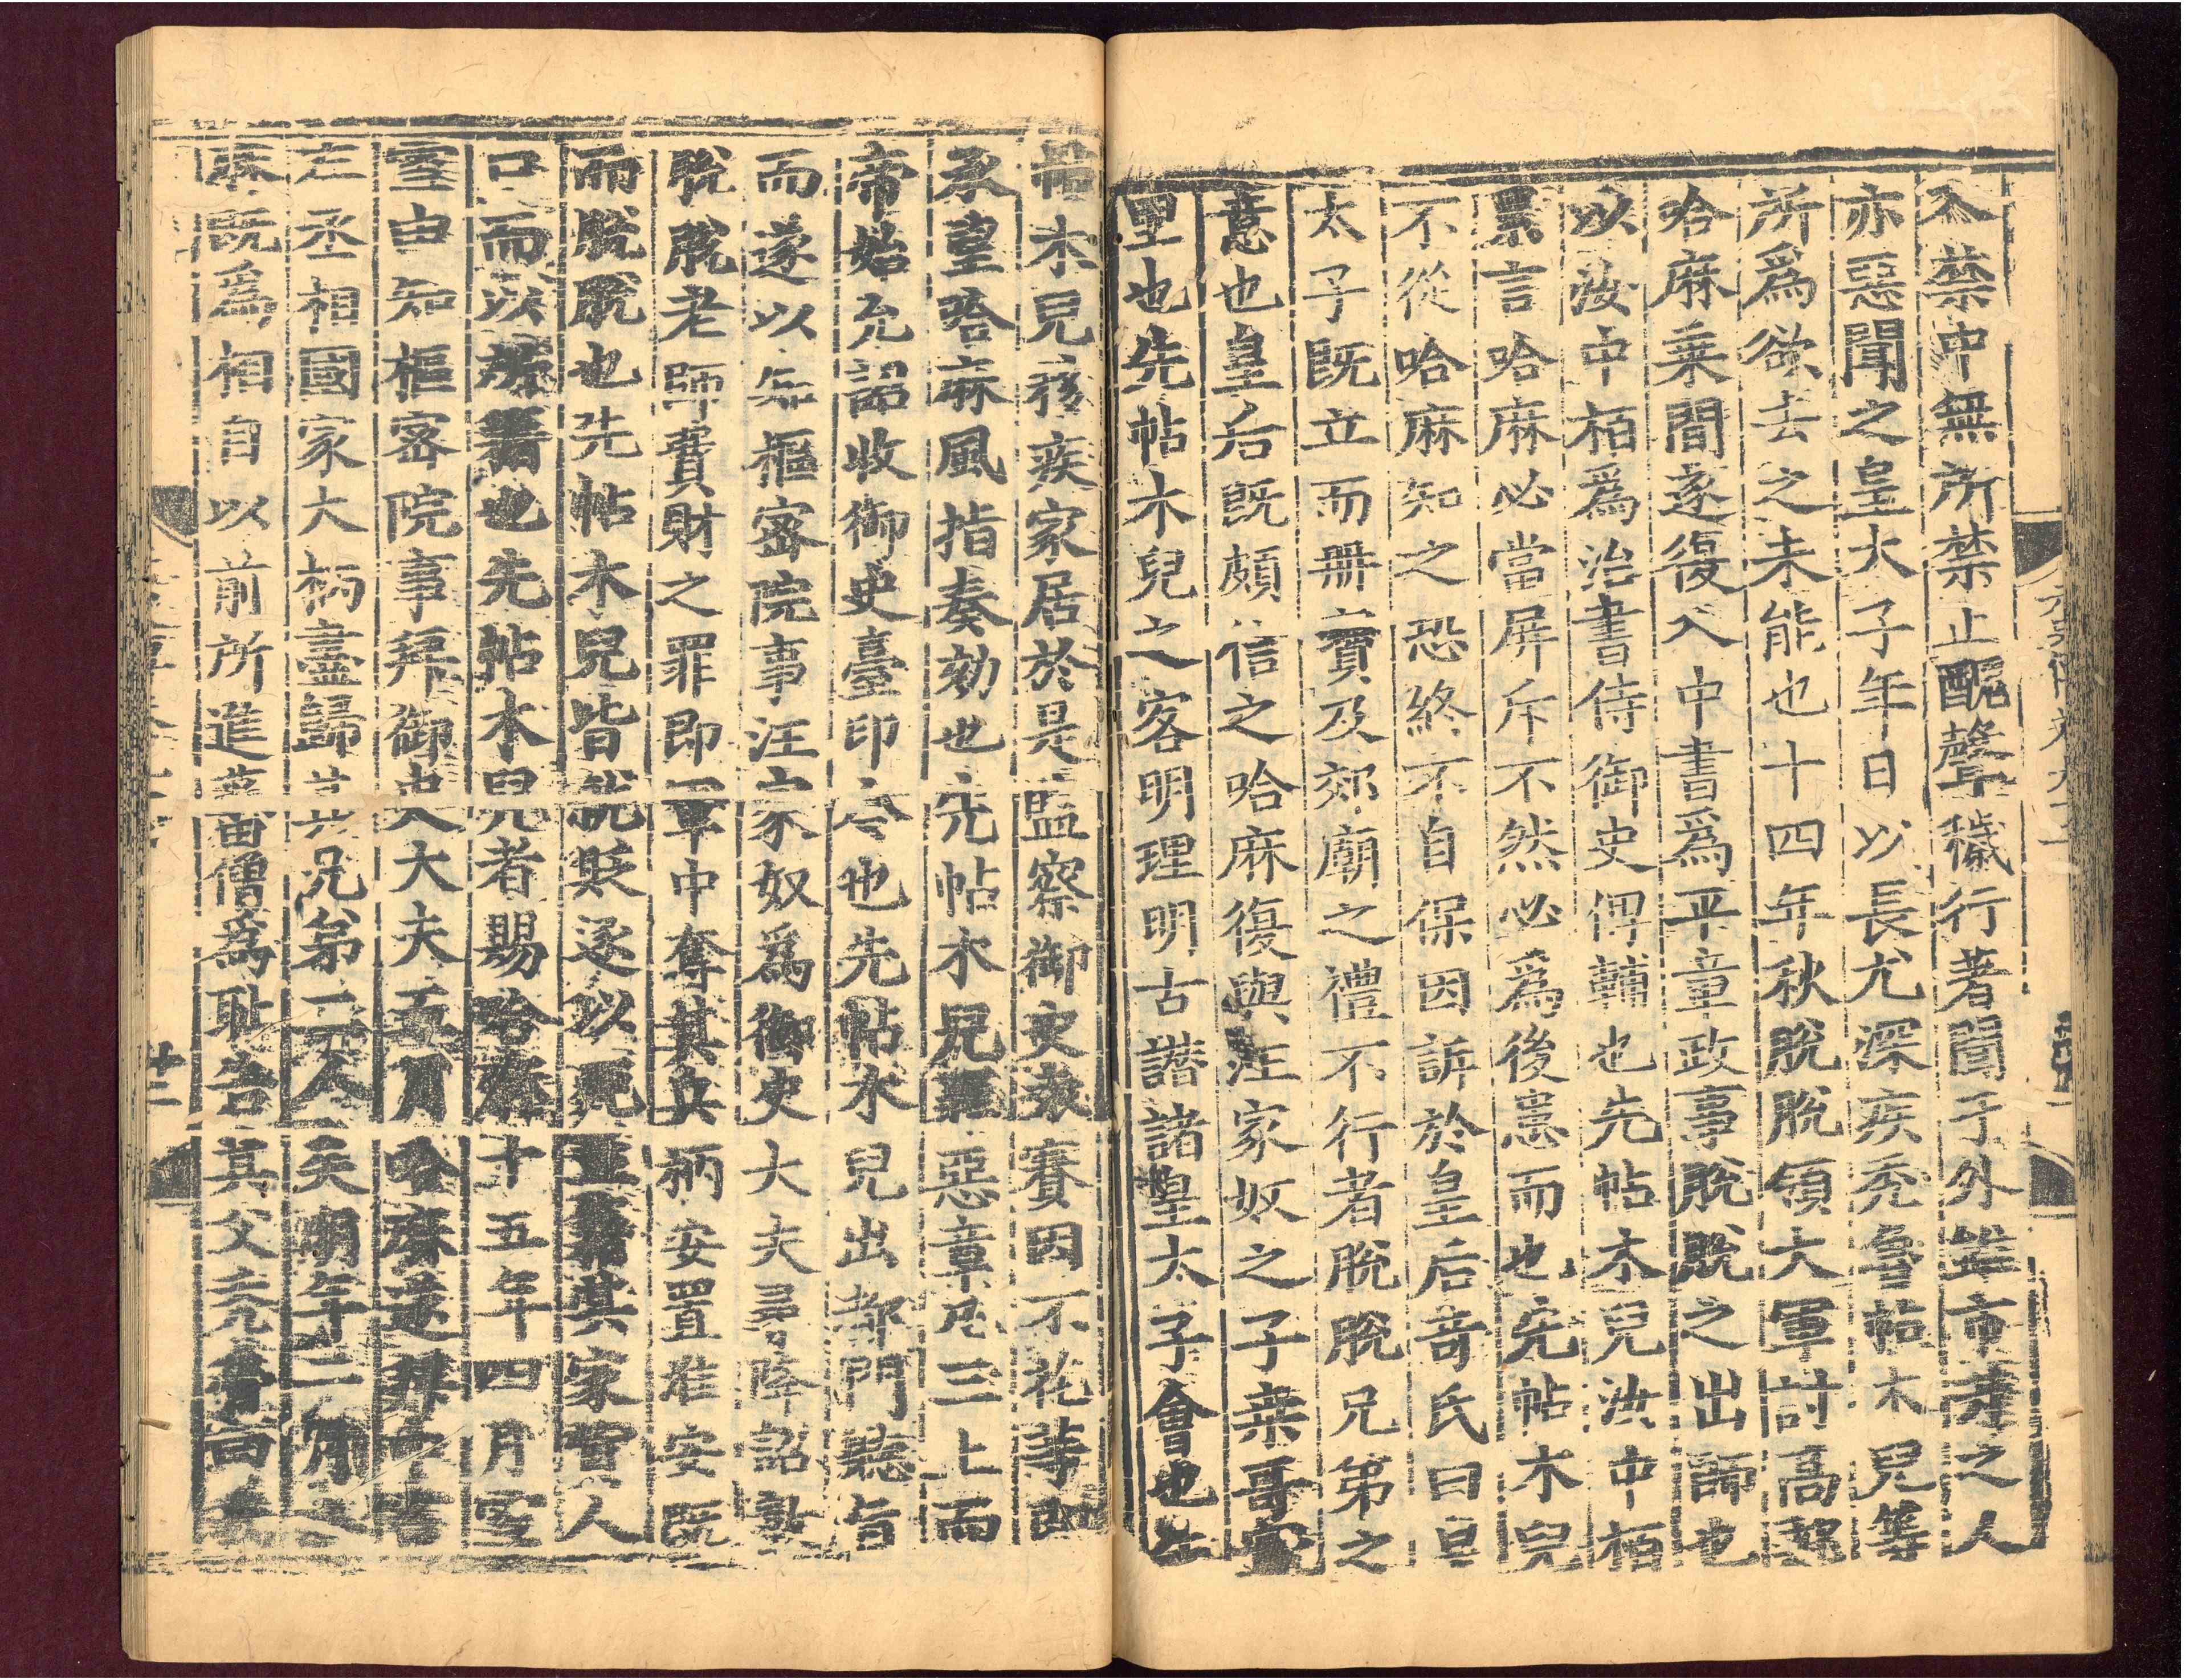 入禁中無所禁止醜聲穢行著聞于外雖市井之人
亦惡聞之皇太子年日以長尤深疾禿魯帖木兒等
所爲欲去之未能也十四年秋脫脫領大軍討高郵
哈麻乗間遂復入中書爲平章政事脫脫之出師也
以汝中栢爲治書侍御史俾輔也先帖木兒汝中栢
累言哈麻必當屏斥不然必爲後患而也先帖木兒
不從哈麻知之恐終不自保因訴於皇后奇氏曰皇
太子既立而冊寶及郊廟之禮不行者脫脫兄弟之
意也皇后既頗信之哈麻復與汪家奴之子桒哥實
里也先帖木兒之客明理明古譖諸皇太子會也先
帖木兒移疾家居於是監察御史袁賽因不花等即
承望哈麻風指奏劾也先帖木兒罪惡章凡三上而
帝始允詔收御史臺印令也先帖木兒出都門聽旨
而遂以知樞密院事汪家奴爲御史大夫尋降詔數
脫脫老師費財之罪即軍中奪其兵柄安置淮安既
而脫脫也先帖木兒皆就貶逐以死並籍其家貲人
口而以所籍也先帖木兒者賜哈麻十五年四月雪
雪由知樞密院事拜御史大夫五月哈麻遂拜中書
左丞相國家大柄盡歸其兄弟二人矣明年二月
麻既爲相自以前所進蕃僧爲耻告其父禿魯曰
廿二